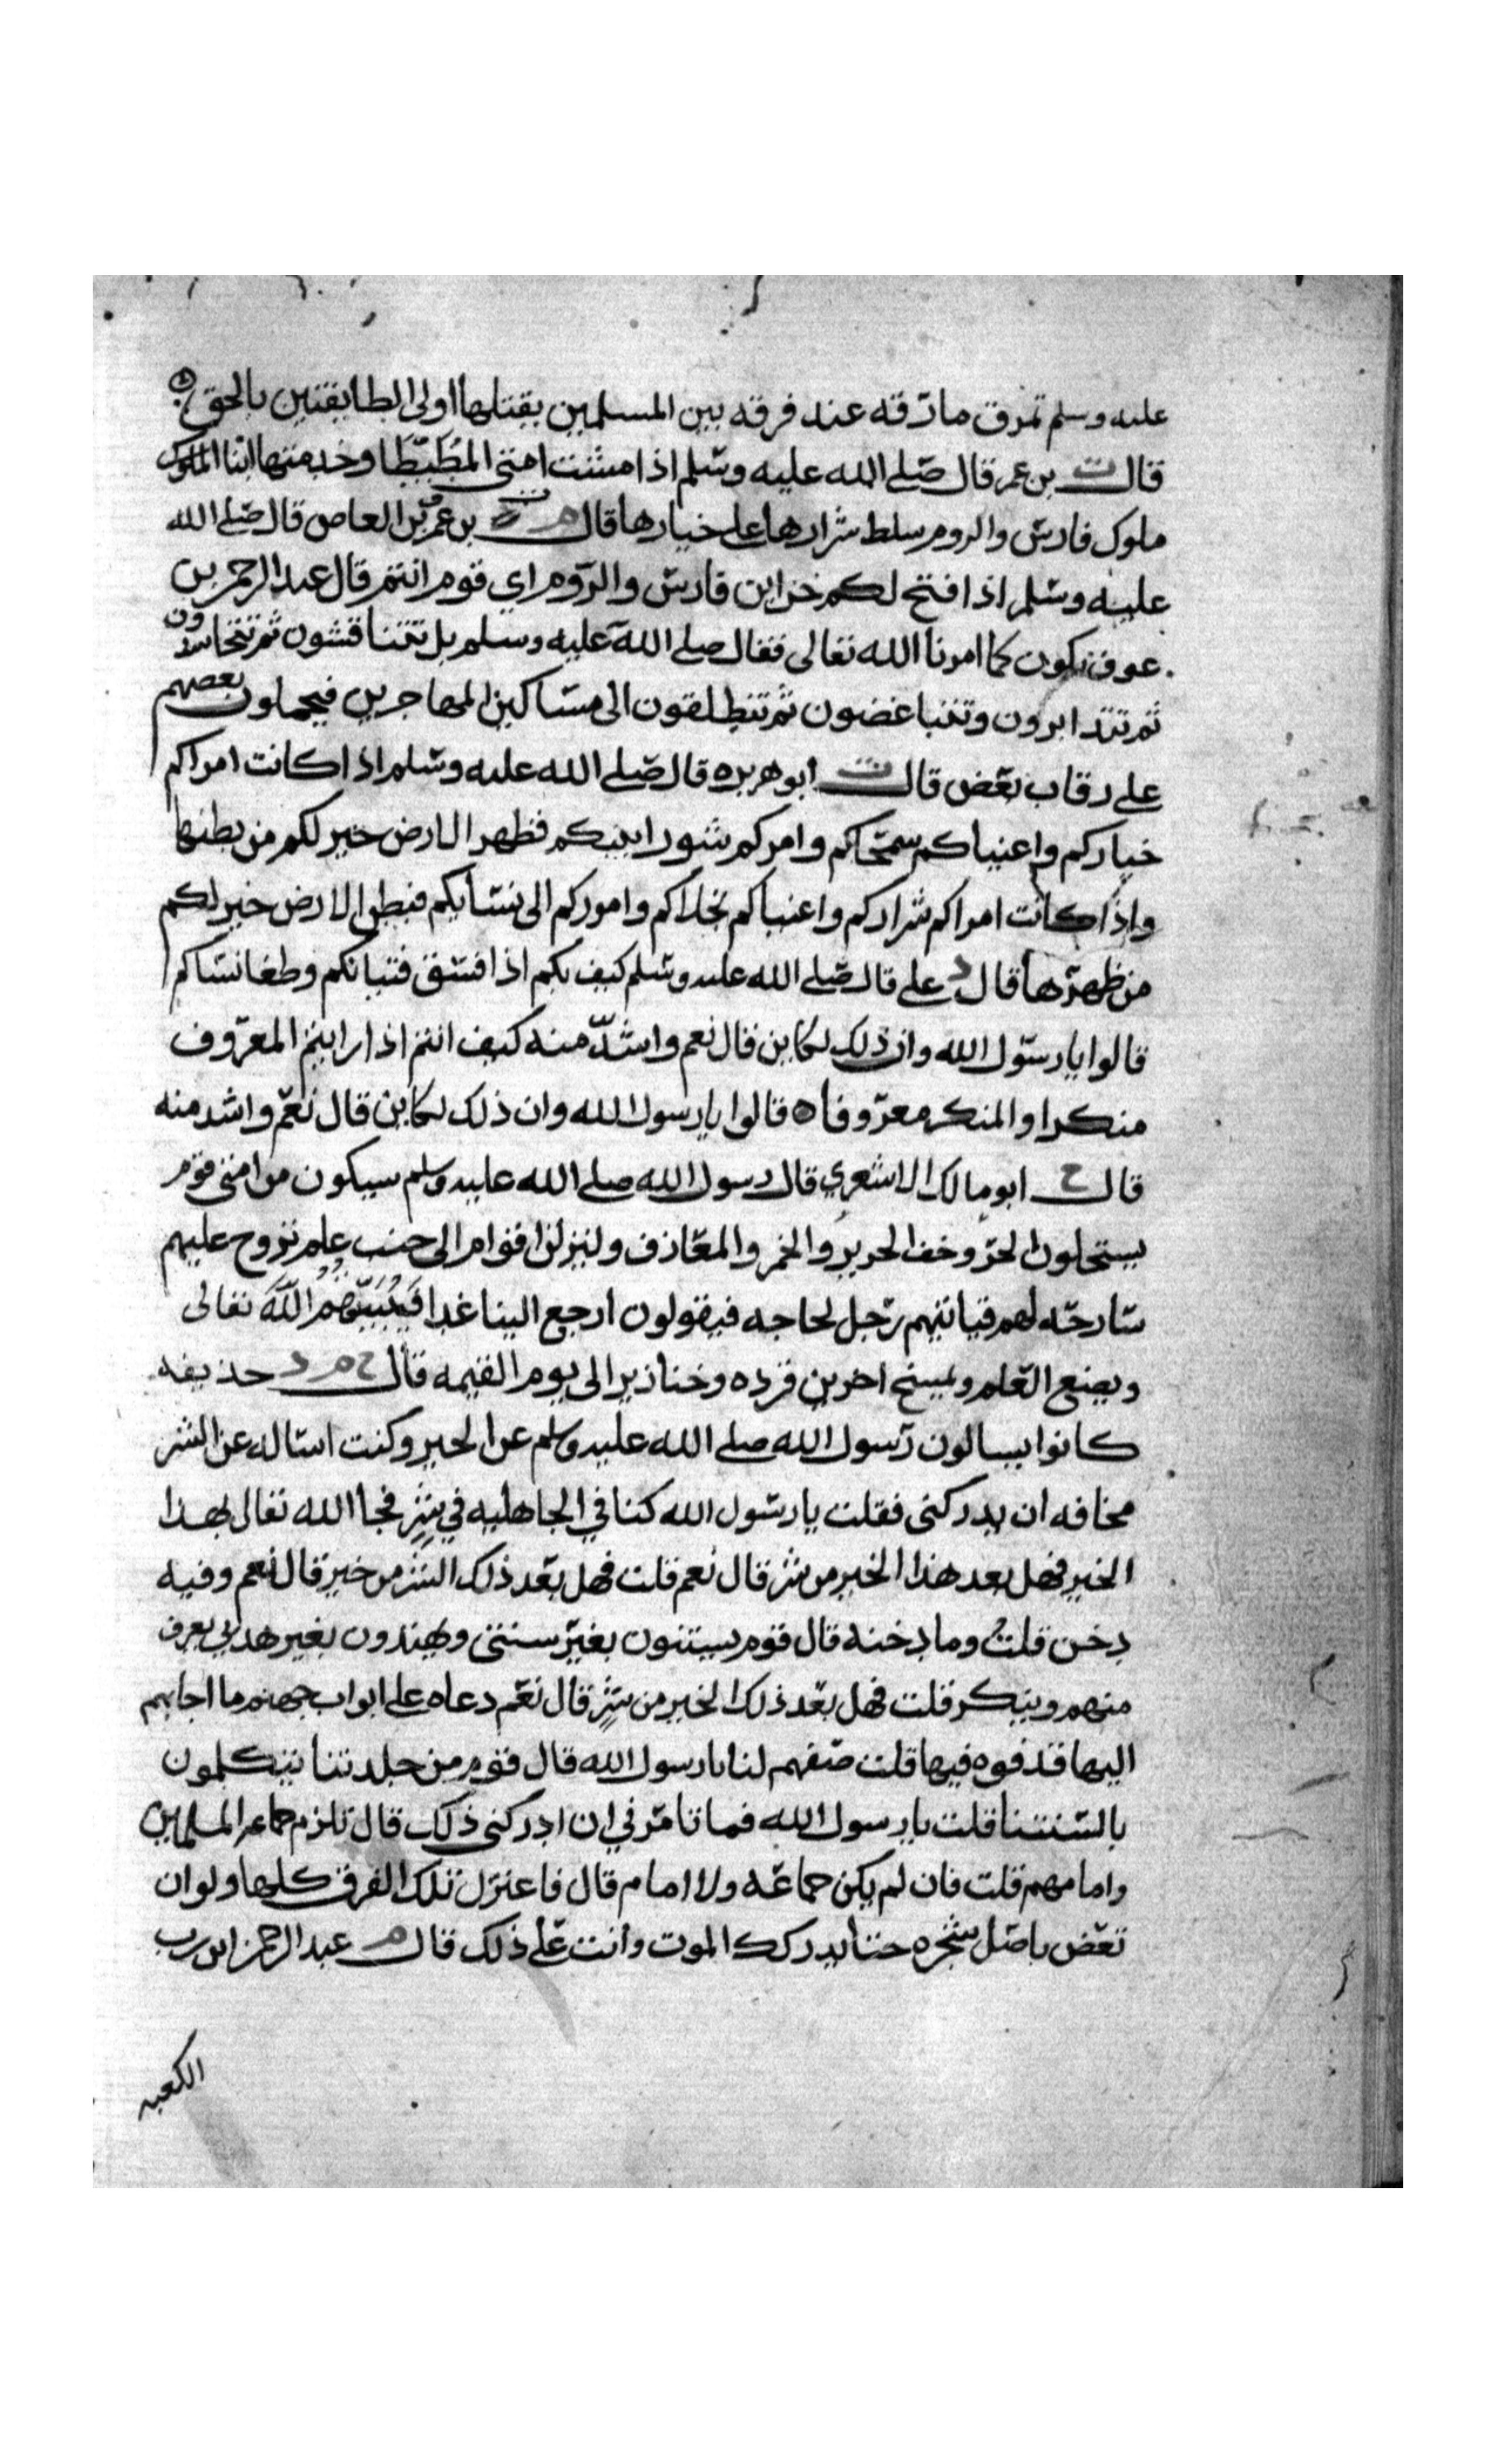 عليه وسلم تمرق مارقه عند فرقه بين المسلمين يقتلها اولى الطايفتين بالحق
قال ت بن عمر قال صلى الله عليه وسلم اذا مشت امتى المُطَيْطَا وخدمتها ابنا الملوك
ملوك فارس والروم سلط شرارها على خيارها قال م بن عمرو بن العاص قال صلى الله
عليه وسلم اذا فتح لكم خزاين فارس والروم اي قوم انتم قال عبد الرحمن بن
عوف نكون كما امرنا الله تعالى فقال صلى الله عليه وسلم بل تتنافسون ثم تتحاسدون
ثم تتدابرون وتتباغضون ثم تنطلقون الى مساكين المهاجرين فيحملون بعضهم
على رقاب بعض قال ت ابو هريره قال صلى الله عليه وسلم اذا كانت امراكم
خياركم واغنياكم سمحاكم وامركم شورا بينكم فظهر الارض خير لكم من بطنها
واذا كانت امراكم شراركم واغنياكم بخلاكم واموركم الى نسايكم فبطن الارض خير لكم
من ظهرها قال علي قال صلى الله عليه وسلم كيف بكم اذا فسق فتيانكم وطغا نساكم
قالوا يا رسول الله وان ذلك لكاين قال نعم واشدّ منه كيف انتم اذا رايتم المعروف
منكرا والمنكر معروفا ه قالوا يا رسول الله وان ذلك لكاين قال نعم واشد منه
قال خ ابو مالك الاشعري قال رسول الله صلى الله عليه وسلم سيكون من امتى قوم
يستحلون الحر وخف الحرير والخمر والمعازف ولينزلن اقوام الى جنب علم تروح عليهم
سارحه لهم فياتيهم رجل لحاجه فيقولون ارجع الينا غدا فَيُبَيِّتُهُم اللَّه تعالى
ويضع العلم ويمسخ اخرين قرده وخنازير الى يوم القيمه قال خ م د حذيفه
كانوا يسالون رسول الله صلى الله عليه وسلم عن الخير وكنت اساله عن الشر
مخافه ان يدركنى فقلت يا رسول الله كنا في الجاهليه في شرٍ فجا الله تعالى بهذا
الخير فهل بعد هذا الخير من شر قال نعم قلت فهل بعد ذلك الشر من خير قال نعم وفيه
دخن قلت وما دخنه قال قوم يستنون بغير سنتى ويهتدون بغير هديي يعرف
منهم وينكر قلت فهل بعد ذلك الخير من شرٍ قال نعم دعاه على ابواب جهنم ما اجابهم
اليها قذفوه فيها قلت صفهم لنا يا رسول الله قال قوم من جلدتنا يتكلمون
بالسنتنا قلت يا رسول الله فما تامر في ان ادركنى ذلك قال تلزم جماعه المسلمين
وامامهم قلت فان لم يكن جماعه ولا امام قال فاعتزل تلك الفرق كلها ولو ان
تعض باصل شجره حتا يدركك الموت وانت على ذلك قال م عبد الرحمن ابن رب
الكعبه